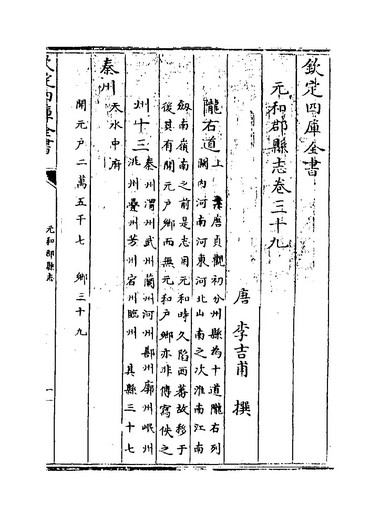 欽定四庫全書
元和郡縣志卷三十九
唐 李吉甫 撰
隴右道上
唐貞觀初分州縣為十道隴右列
關内河南河東河北山南之次淮南江南
劒南嶺南之前是志因元和時久陷西蕃故移于
後具有開元户鄉而無元和户鄉亦非傳寫佚之
州十三
秦州渭州武州蘭州河州鄯州廓州岷州
洮州疊州芳州宕州臨州 具縣三十七
秦州
天水中府
開元户二萬五千七 鄉三十九
欽定四庫全書
元和郡縣志
一